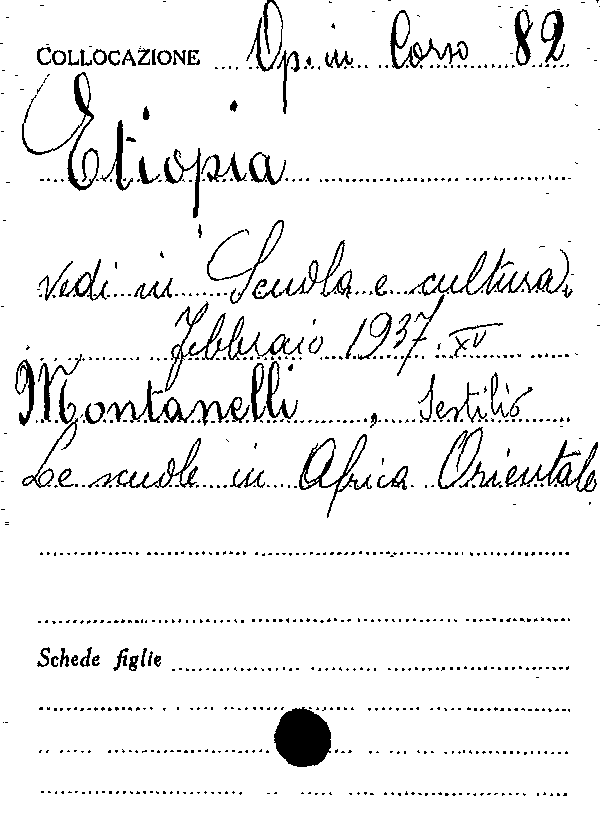 COLLOCAZIONE Op. in Corso 82
Etiopia
vedi in Scuola e cultura,
Febbraio 1937. XV
Montanelli, Sestilio
Le scuole in Africa Orientale
Schede figlie